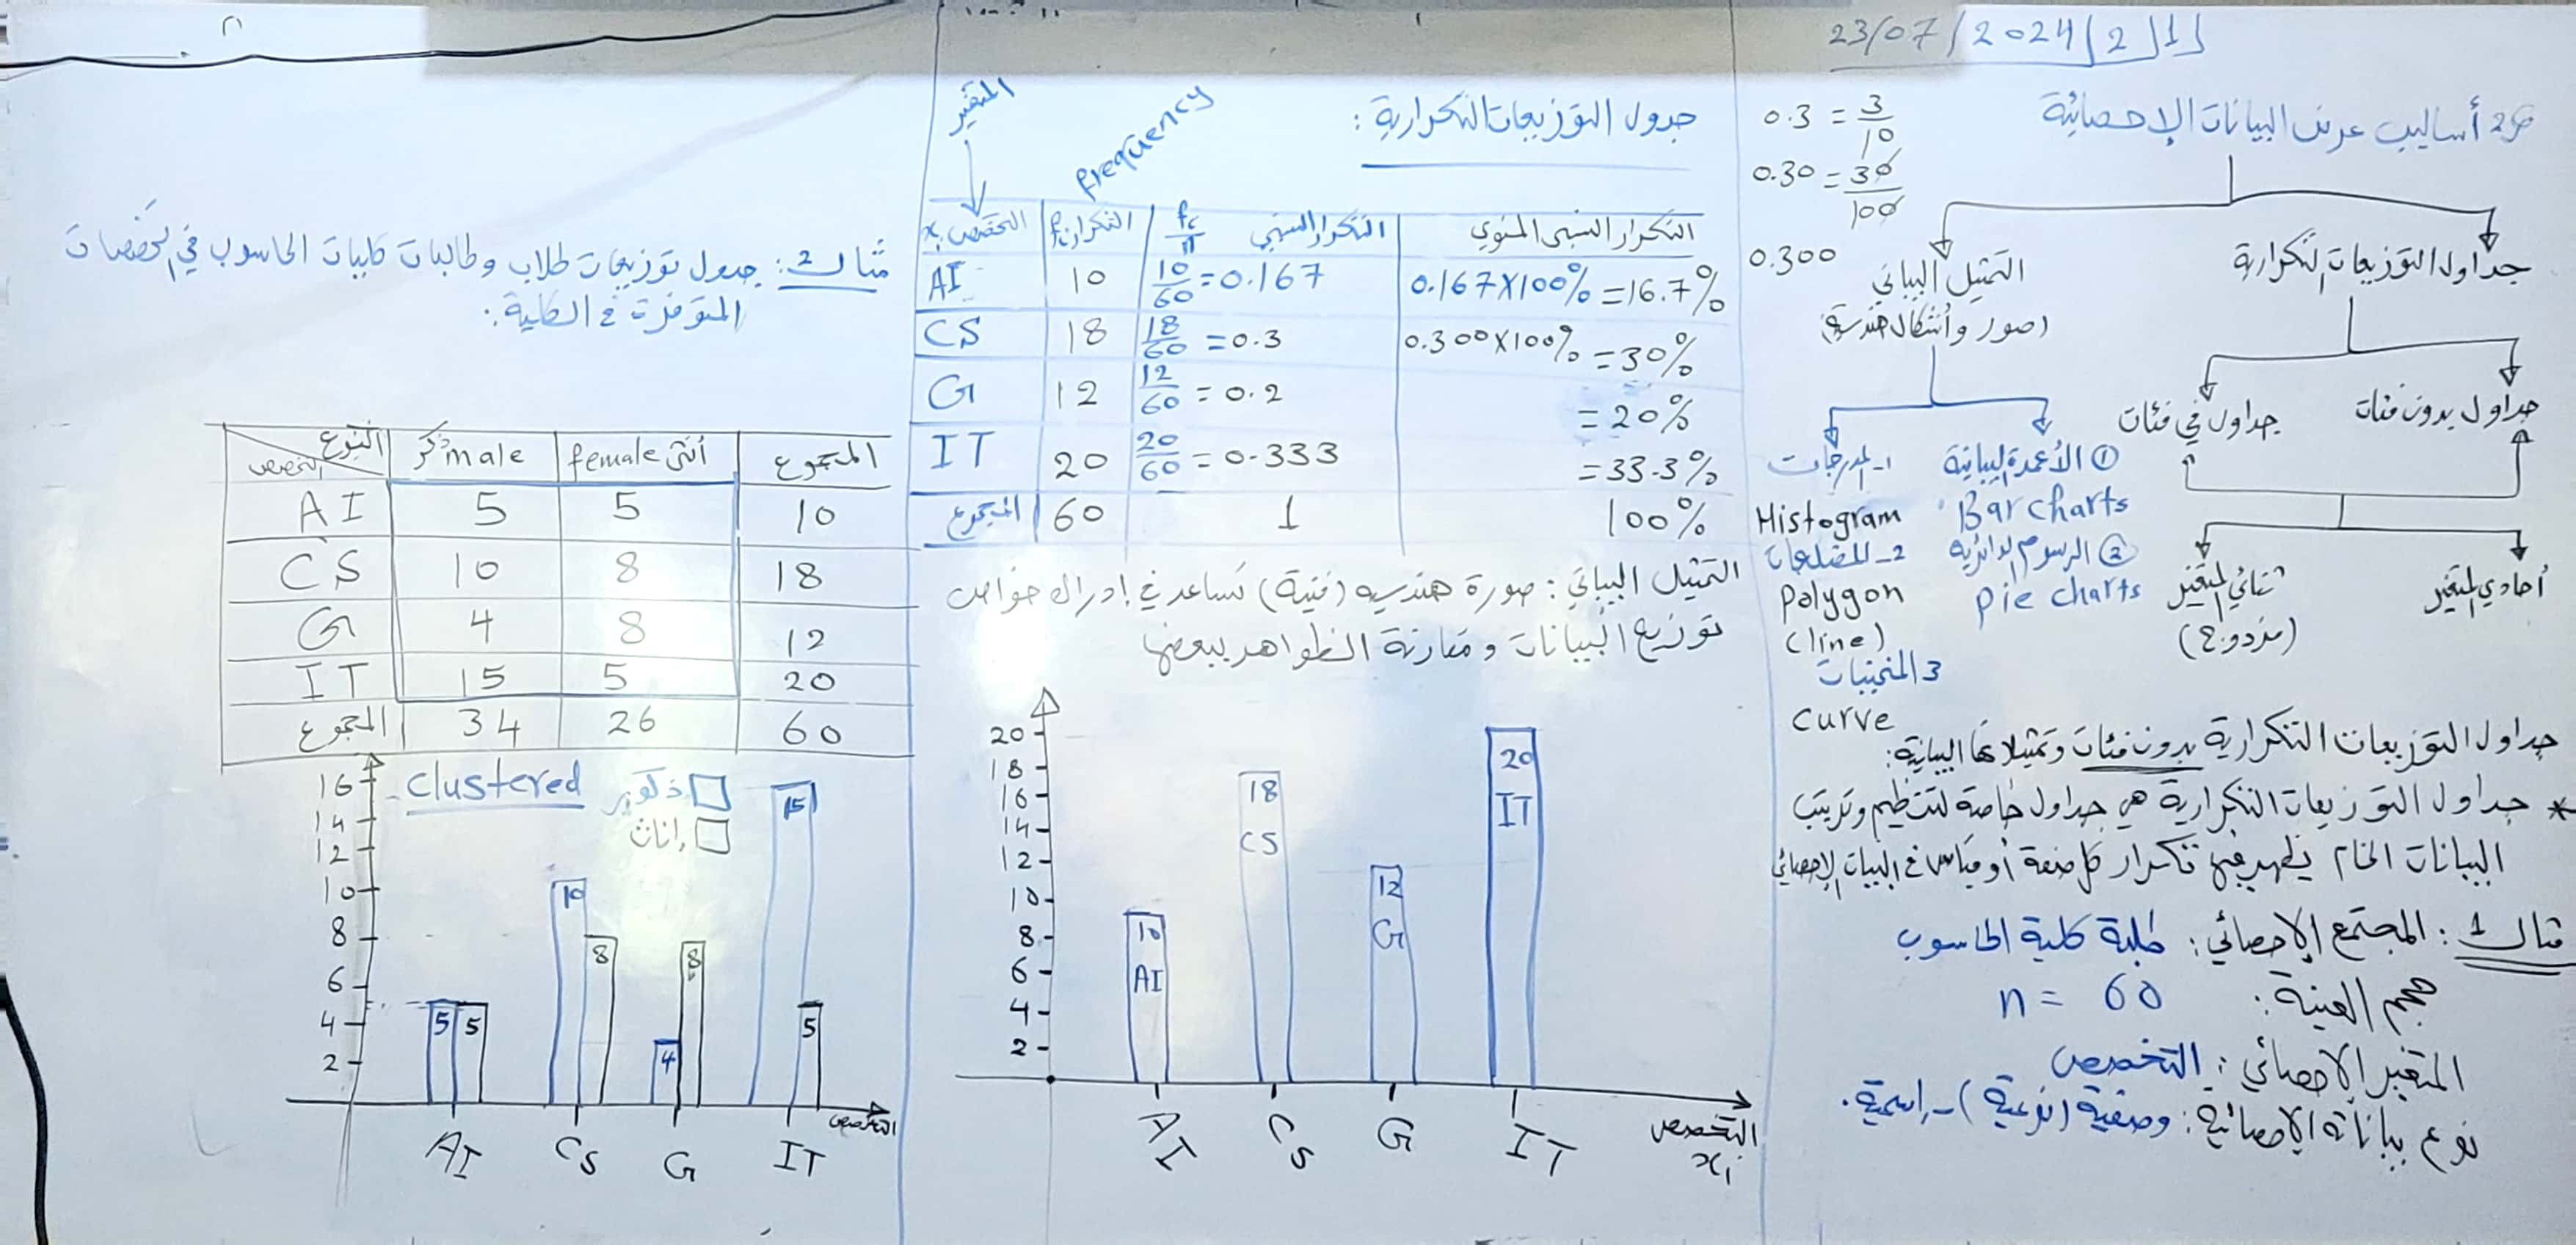 23/07/2024
2 أساليب عرض البيانات الإحصائية
جداول التوزيعات التكرارية
التمثيل البياني
(صور وأشكال هندسية)
جداول بدون فئات
جداول في فئات
أحادي المتغير
ثنائي المتغير
(مزدوج)
① الأعمدة البيانية
Bar charts
② الرسوم الدائرية
pie charts
1- المدرجات
Histogram
2- المضلعات
Polygon
(line)
3 المنحنيات
curve
0.3 = 3/10
0.30 = 30/100
0.300
جداول التوزيعات التكرارية بدون فئات وتمثيلاتها البيانية:
* جداول التوزيعات التكرارية هي جداول خاصة لتنظيم وترتيب
البيانات الخام يظهر فيها تكرار كل صفة أو قياس في البيان الإحصائي
مثال 1: المجتمع الإحصائي: طلبة كلية الحاسوب
حجم العينة: n = 60
المتغير الإحصائي: التخصص
نوع بياناته الإحصائية: وصفية (نوعية) - إسمية.
جدول التوزيعات التكرارية:
المتغير
frequency
التخصص xi | التكرار fi | التكرار النسبي fi/n | التكرار النسبي المئوي
AI | 10 | 10/60 = 0.167 | 0.167X100% = 16.7%
CS | 18 | 18/60 = 0.3 | 0.300X100% = 30%
G | 12 | 12/60 = 0.2 | = 20%
IT | 20 | 20/60 = 0.333 | = 33.3%
المجموع | 60 | 1 | 100%
التمثيل البياني: صورة هندسية (فنية) تساعد في إدراك خواص
توزيع البيانات ومقارنة الظواهر ببعضها
20
18
16
14
12
10
8
6
4
2
10 AI
18 CS
12 G
20 IT
AI CS G IT
التخصص xi
مثال 2: جدول توزيعات طلاب وطالبات كليات الحاسوب في التخصصات
المتوفرة في الكلية:
النوع التخصص | ذكر male | female أنثى | المجموع
AI | 5 | 5 | 10
CS | 10 | 8 | 18
G | 4 | 8 | 12
IT | 15 | 5 | 20
المجموع | 34 | 26 | 60
clustered
ذكور
إناث
16
14
12
10
8
6
4
2
5 5
10 8
4 8
15 5
AI CS G IT
التخصص